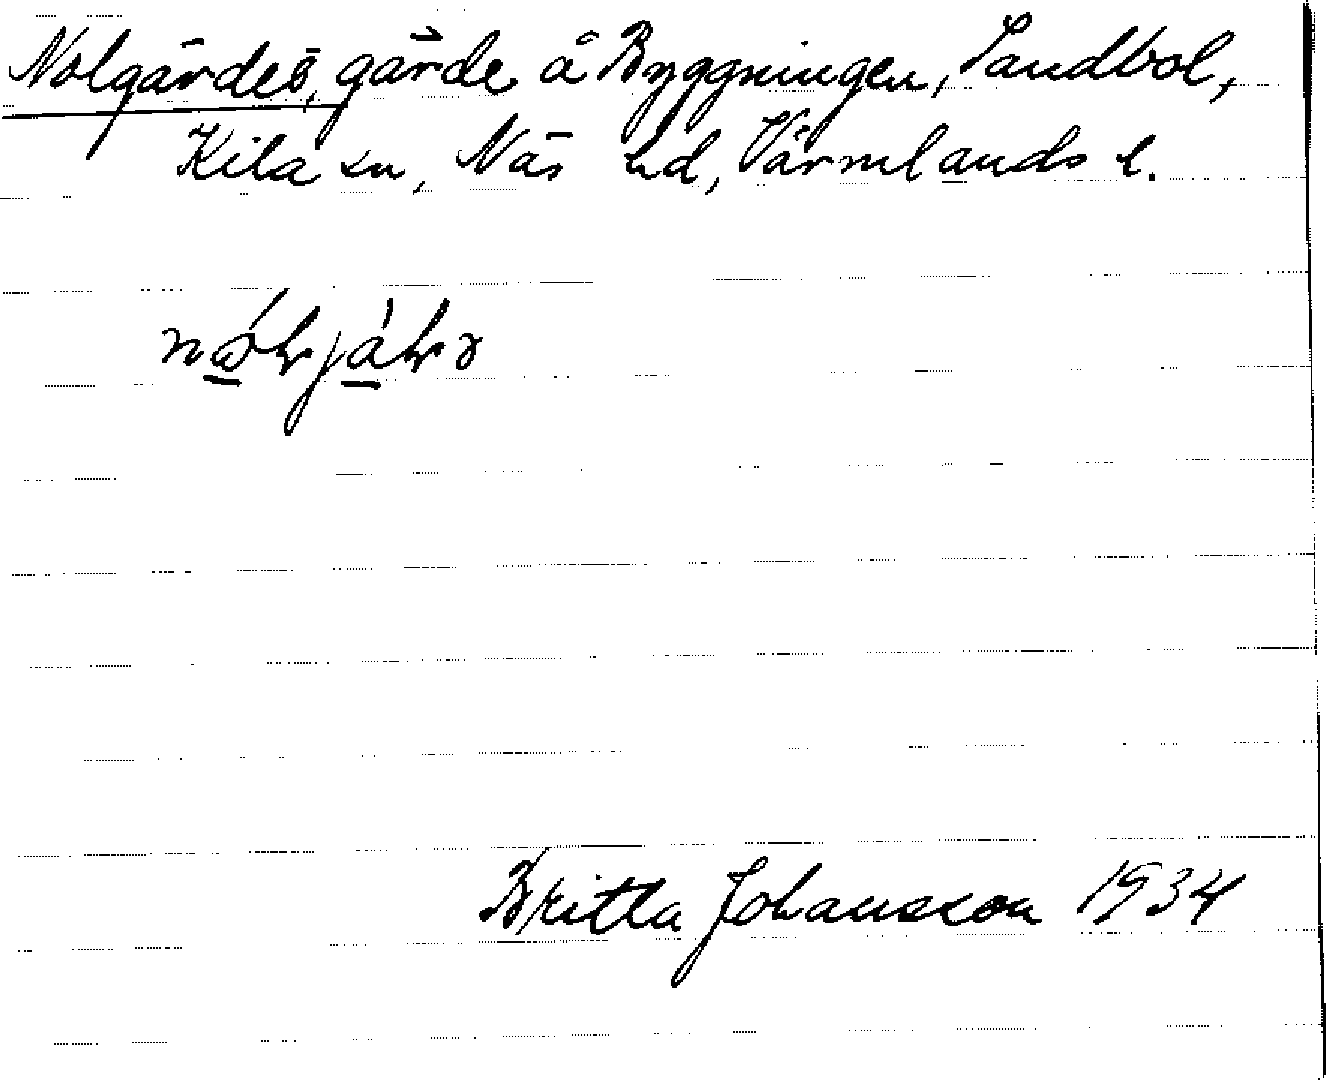 Nolgärdes, gärde å Byggningen, Sandbol,
Kila sn, Näs hd, Värmlands l.
Britta Johansson 1934